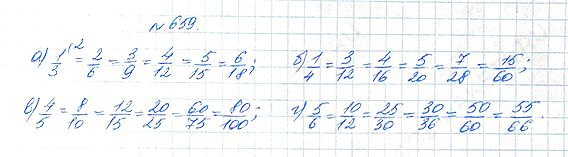 № 659.
а) 1/3 ^(·2 = 2/6 = 3/9 = 4/12 = 5/15 = 6/18; б) 1/4 = 3/12 = 4/16 = 5/20 = 7/28 = 15/60;
в) 4/5 = 8/10 = 12/15 = 20/25 = 60/75 = 80/100; г) 5/6 = 10/12 = 25/30 = 30/36 = 50/60 = 55/66.